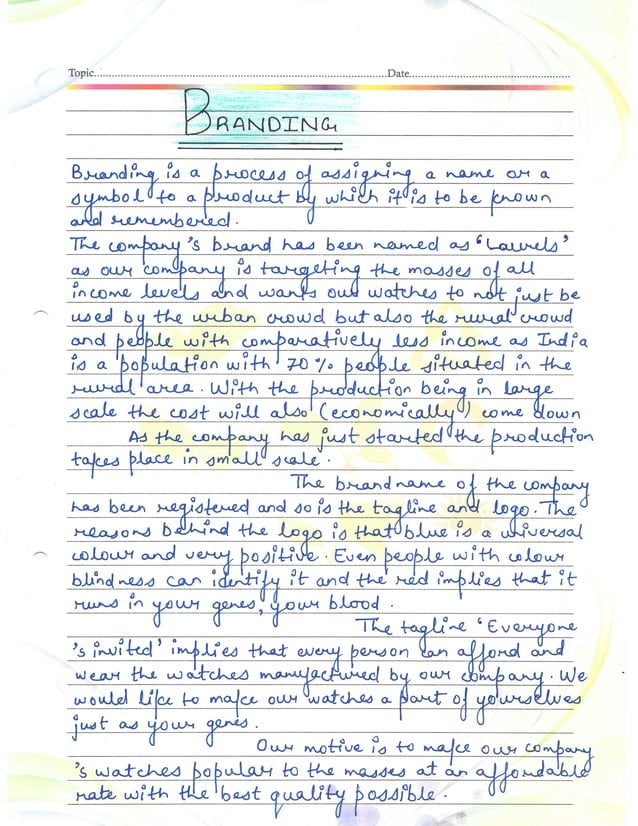 Topic.......... Date..........
BRANDING
Branding is a process of assigning a name or a
symbol to a product by which it is to be known
and remembered.
The company's brand has been named as 'Laurels'
as our company is targeting the masses of all
income levels and wants our watches to not just be
used by the urban crowd but also the rural crowd
and people with comparatively less income as India
is a population with 70% people situated in the
rural area. With the production being in large
scale the cost will also (economically) come down
As the company has just started the production
takes place in small scale.
The brandname of the company
has been registered and so is the tagline and logo. The
reasons behind the logo is that blue is a universal
colour and very positive. Even people with colour
blindness can identify it and the red implies that it
runs in your genes, your blood.
The tagline 'Everyone
's invited' implies that every person can afford and
wear the watches manufactured by our company. We
would like to make our watches a part of yourselves
just as your genes.
Our motive is to make our company
's watches popular to the masses at an affordable
rate with the best quality possible.